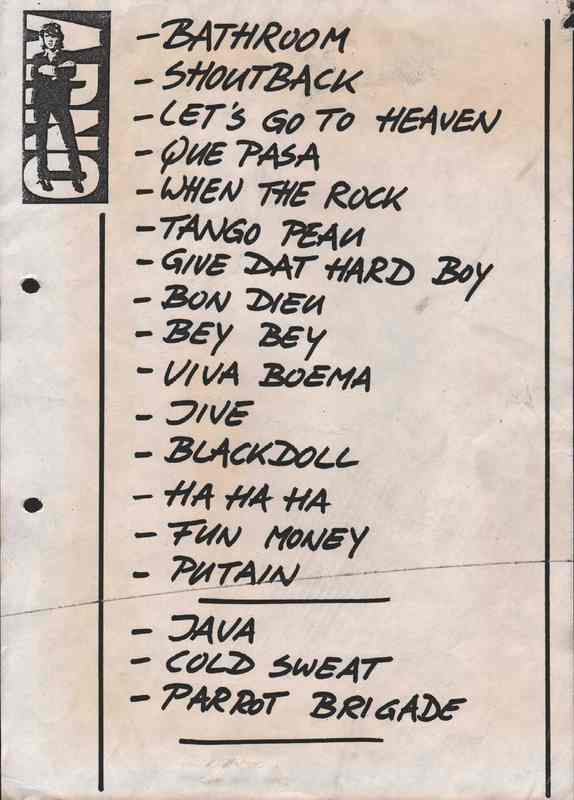 ARNO
- BATHROOM
- SHOUTBACK
- LET'S GO TO HEAVEN
- QUE PASA
- WHEN THE ROCK
- TANGO PEAU
- GIVE DAT HARD BOY
- BON DIEU
- BEY BEY
- VIVA BOEMA
- JIVE
- BLACKDOLL
- HA HA HA
- FUN MONEY
- PUTAIN
- JAVA
- COLD SWEAT
- PARROT BRIGADE